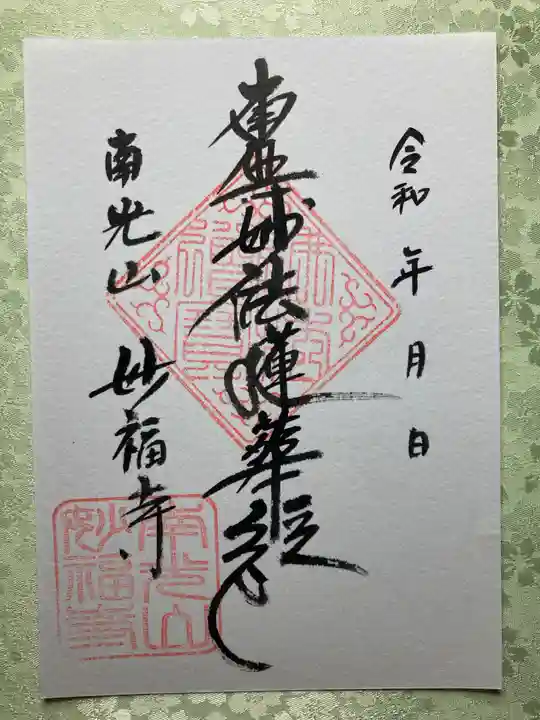 令和 年 月 日
南無妙法蓮華経
南光山 妙福寺
南光山
妙福寺